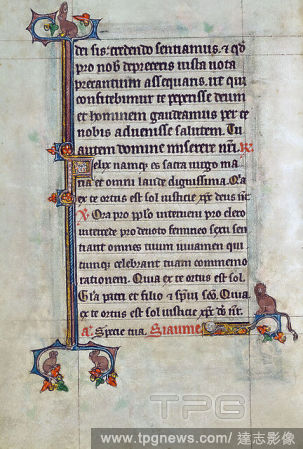 dei sis: credendo sentiamus. et qd
pro nob depreceris iuxta uota
precantium assequaris. ut qui
confitebimur te peperisse deum
et hominem gaudeamus per te
nobis aduenisse salutem. Tu
autem domine miserere nri. R.
Felix namque es sacra uirgo ma
ria et omni laude dignissima. Qia
ex te ortus est sol iusticie xpc deus nr.
V. Ora pro pplo interueni pro clero
intercede pro deuoto femineo sexu sen
tiant omnes tuum iuuamen qui
cumque celebrant tuam commemo
rationem. Quia ex te ortus est sol.
Gla patri et filio et spui sco. Quia
ex te ortus est sol iusticie xpc ds nr.
A. Specie tua.
TPG
www.tpgnews.com/ 達志影像